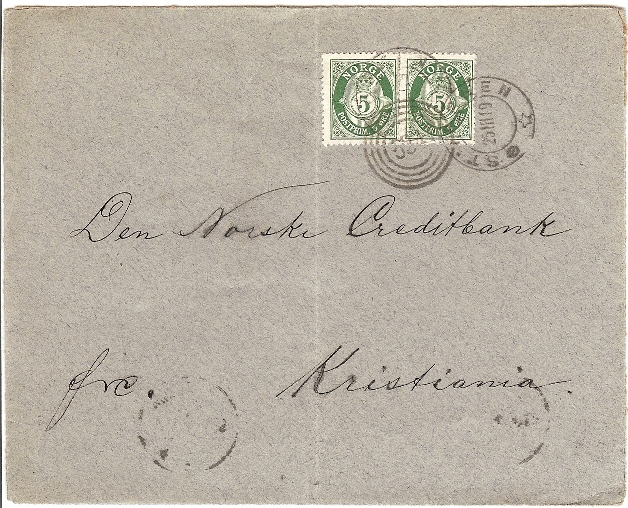 NORGE NORGE
5 5
POSTFRIM. 5 ØRE POSTFRIM. 5 ØRE
Den Norske Creditbank
frc. Kristiania.